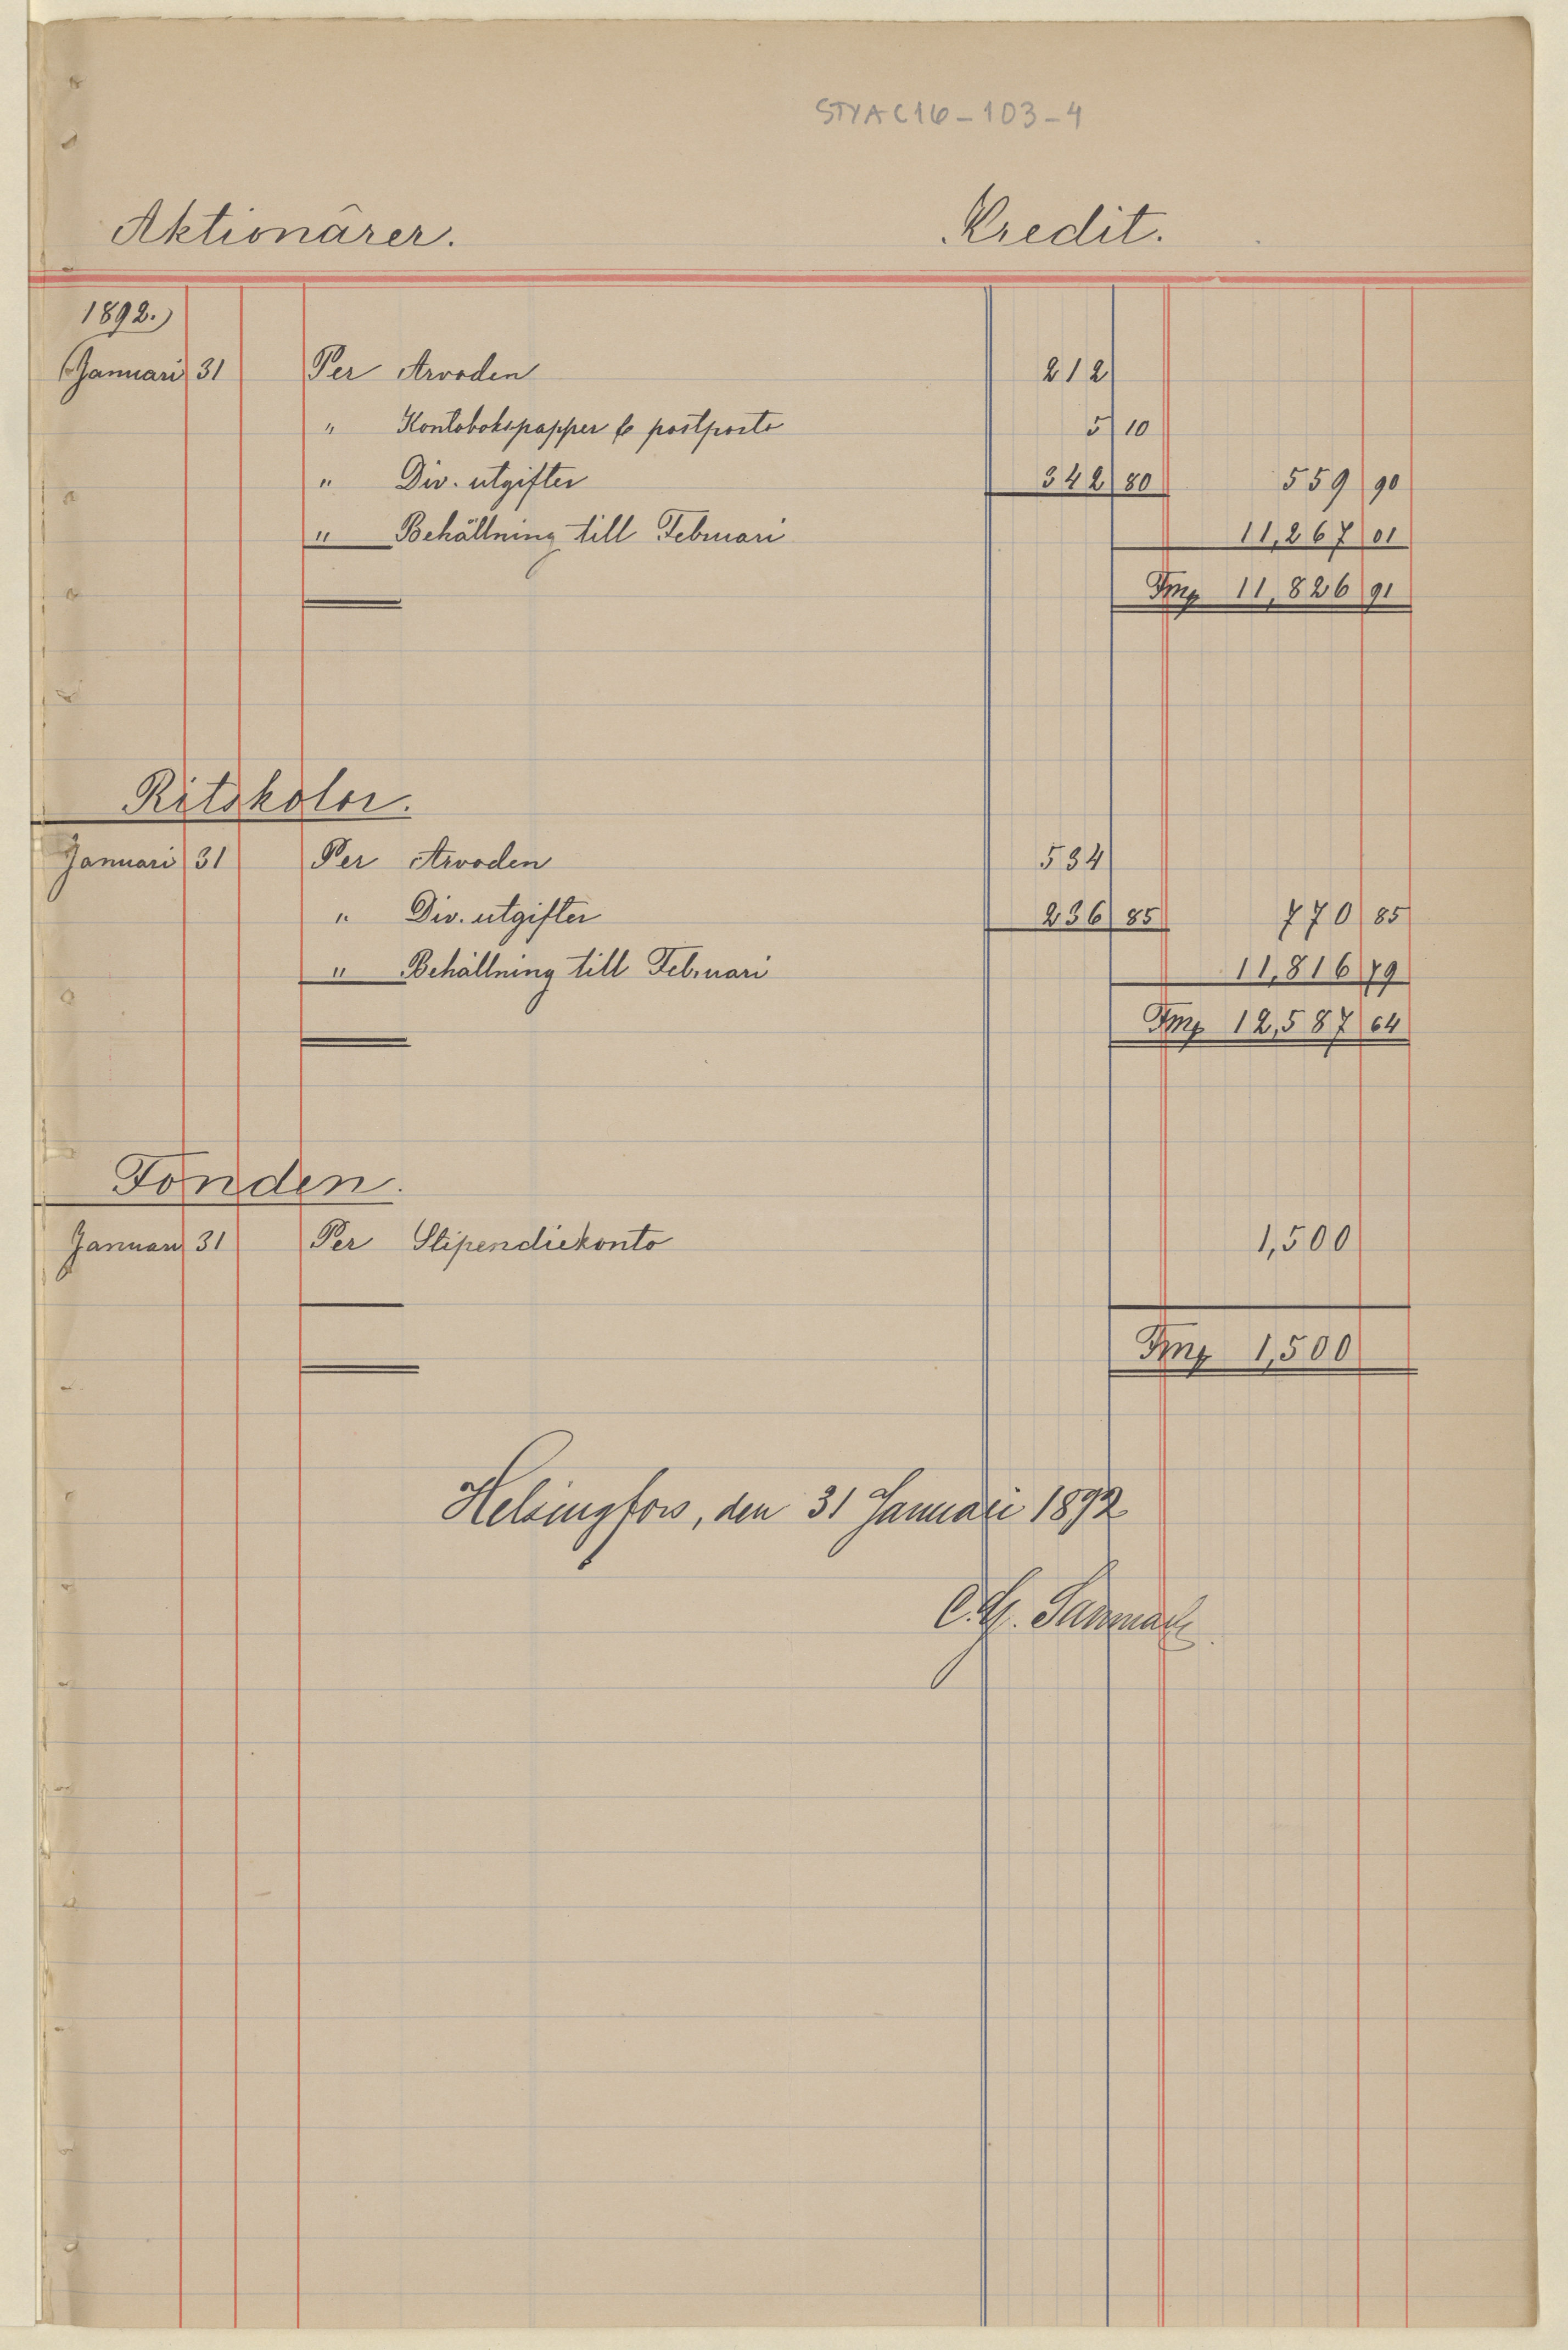 STYAC16-103-4
Aktionärer. Kredit.
1892.
Januari 31 Per Arvoden 212
" Kontobokspapper & postporto 5 10
" Div. utgifter 342 80 559 90
" Behållning till Februari 11,267 01
Fmk 11,826 91
Ritskolor.
Januari 31 Per Arvoden 534
" Div. utgifter 236 85 770 85
" Behållning till Februari 11,816 79
Fmk 12,587 64
Fonden.
Januari 31 Per Stipendiekonto 1,500
Fmk 1,500
Helsingfors, den 31 Januari 1892
C. G. Sanmark